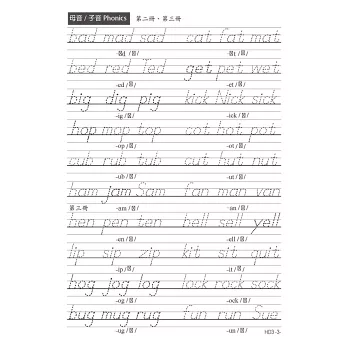 母音 / 子音 Phonics 第二冊、第三冊
bad mad sad cat fat mat
bed red Ted get pet wet
-ed / -et /
big dig pig kick Nick sick
-ig / -ick /
hop mop top cot hot pot
-op / -ot /
cub rub tub cut hut nut
-ub / -ut /
ham jam Sam fan man van
第三冊 -am / -an /
hen pen ten bell sell yell
-en / -ell /
lip sip zip kit sit quit
-ip / -it /
hog jog log lock rock sock
-og / -ock /
bug mug rug fun run Sue
-ug / -un / H03 -3-